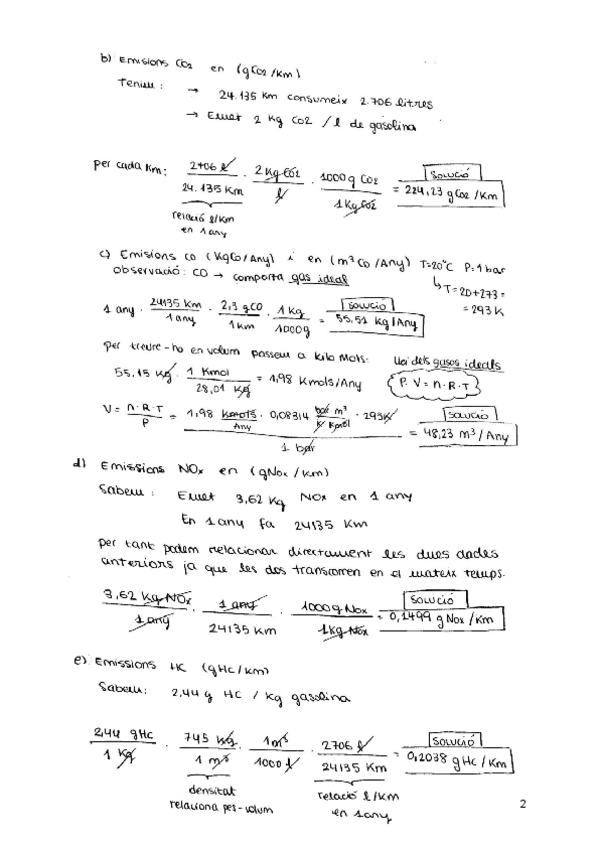 b) Emisions CO2 en (gCO2/Km)
Tenim: → 24.135 Km consumeix 2.706 litres
→ Emet 2 Kg CO2 / l de gasolina
per cada Km: 2706 l / 24.135 Km · 2 Kg CO2 / l · 1000 g CO2 / 1 Kg CO2 = 224,23 g CO2 / Km SOLUCIÓ
relació l/Km
en 1 any
c) Emisions CO (KgCO/Any) i en (m³ CO /Any) T=20°C P=1 bar
observació: CO → comporta gas ideal
↳ T=20+273=
= 293 K
1 any · 24135 Km / 1 any · 2,3 gCO / 1 Km · 1 Kg / 1000g = 55,51 Kg/Any SOLUCIÓ
per treure-ho en volum passem a kilo Mols: Llei dels gasos ideals
55,15 Kg · 1 Kmol / 28,01 Kg = 1,98 Kmols/Any
P. V = n. R. T
V = n.R.T / P = 1,98 Kmols / Any · 0,08314 bar m³ / K Kmol · 293K / 1 bar = 48,23 m³/Any SOLUCIÓ
d) Emissions NOx en (gNOx /Km)
Sabem: Emet 3,62 Kg NOx en 1 any
En 1 any fa 24135 Km
per tant podem relacionar directament les dues dades
anteriors ja que les dos transcorren en el mateix temps.
3,62 Kg NOx / 1 any · 1 any / 24135 Km · 1000 g NOx / 1 Kg NOx = 0,1499 g NOx /Km SOLUCIÓ
e) Emissions HC (gHC/Km)
Sabem: 2,44 g HC / Kg gasolina
2,44 gHC / 1 Kg · 745 Kg / 1 m³ · 1 m³ / 1000 l · 2706 l / 24135 Km = 0,2038 g HC / Km SOLUCIÓ
densitat
relaciona pes-volum
relació l/Km
en 1 any
2